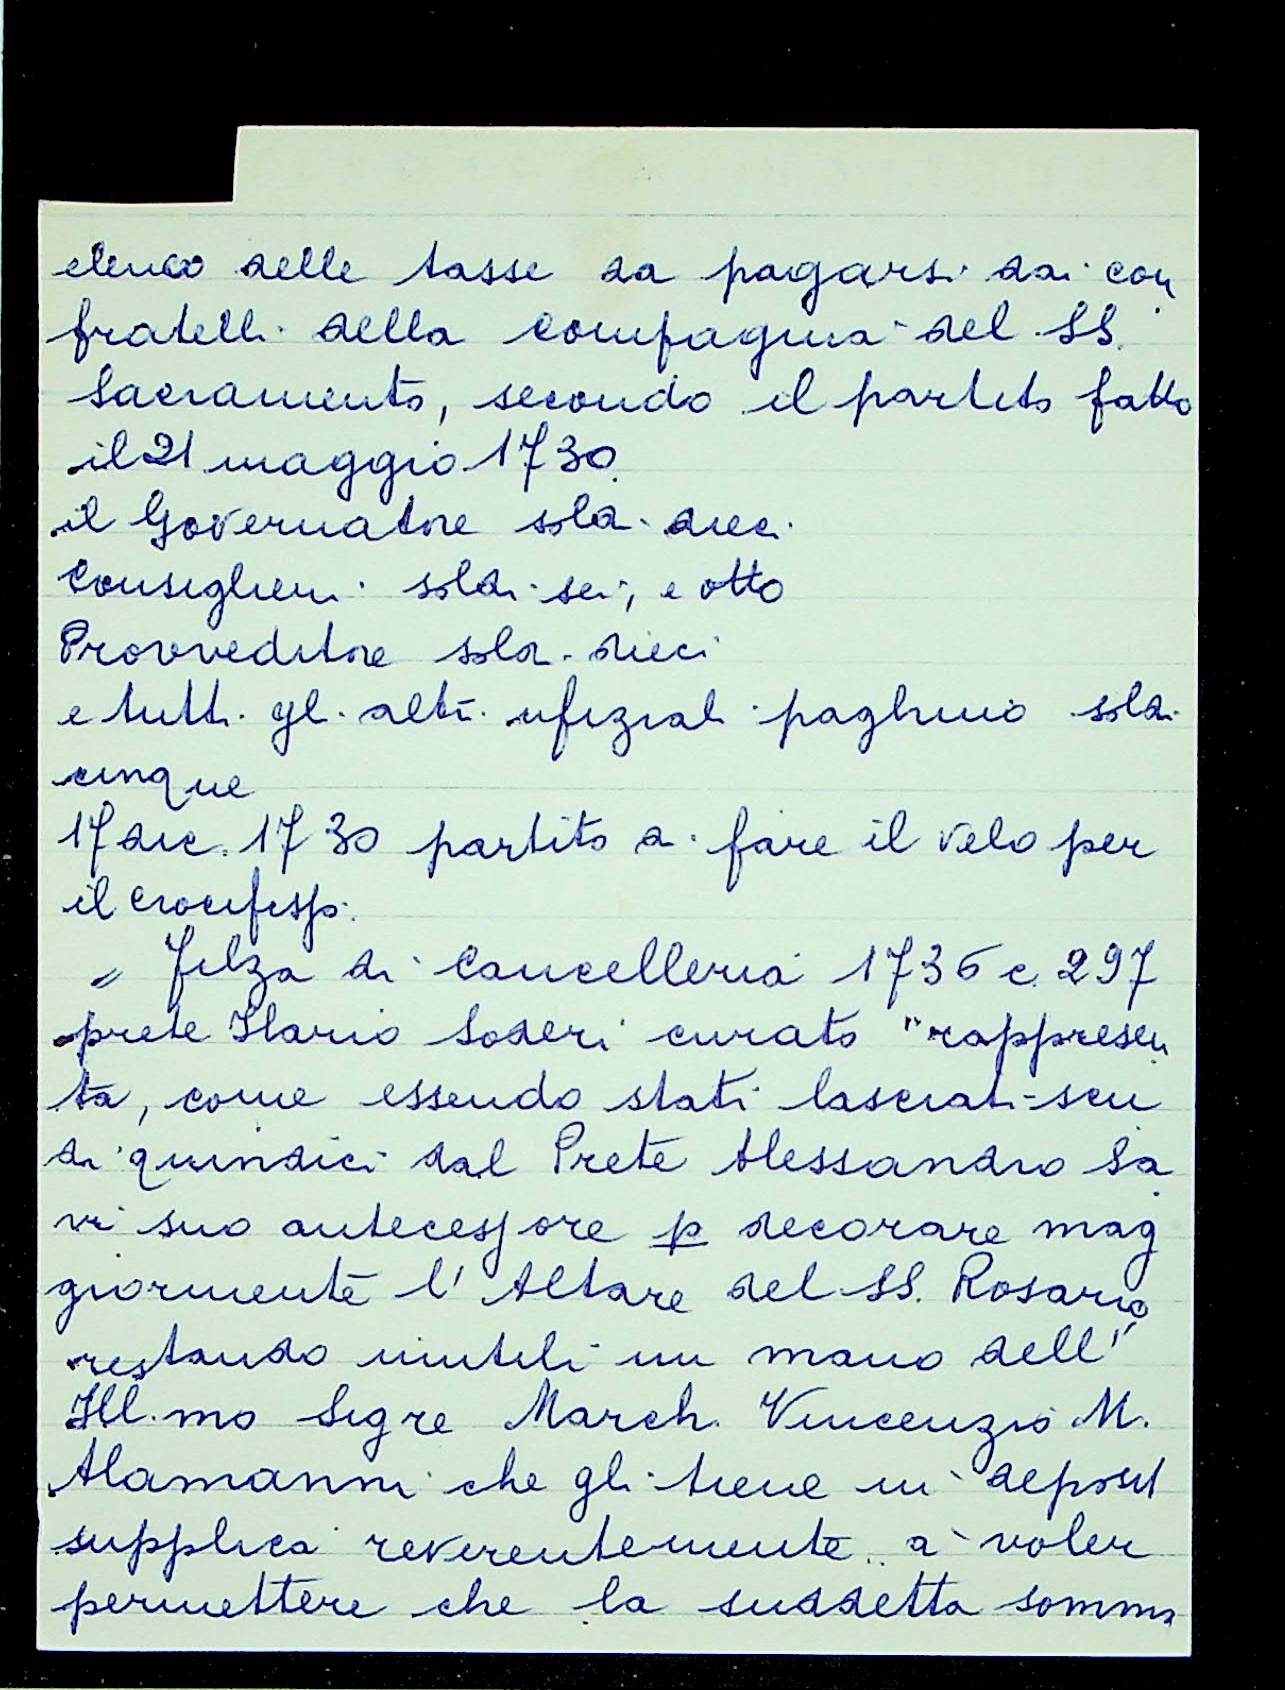 elenco delle tasse da pagarsi dai con
fratelli della Compagnia del SS.
Sacramento, secondo il partito fatto
il 21 maggio 1730
il Governatore soldi dieci
Consiglieri soldi sei, e otto
Provveditore soldi dieci
e tutti gli altri ufiziali paghino soldi
cinque
17 dic. 1730 partito di fare il velo per
il Crocifisso.
" Filza di Cancelleria 1736 c. 297
prete Ilario Soderi curato "rappresen
ta, come essendo stati lasciati=scu
di quindici dal Prete Alessandro Sa
vi suo antecessore p decorare mag
giormente l'Altare del SS. Rosario
restando inutili in mano dell'
Ill.mo Sigre March. Vincenzio M.
Alamanni che gli tiene in deposit
supplica reverentemente a voler
permettere che la suddetta somma